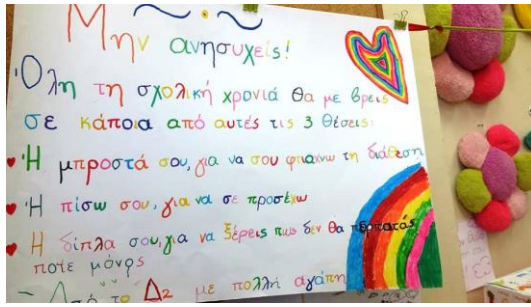 Μην ανησυχείς!
Όλη τη σχολική χρονιά θα με βρεις
σε κάποια από αυτές τις 3 θέσεις:
Ή μπροστά σου, για να σου φτιάχνω τη διάθεση
Ή πίσω σου, για να σε προσέχω
Ή δίπλα σου, για να ξέρεις πως δεν θα περπατάς
ποτέ μόνος
Από το Δ2 με πολλή αγάπη